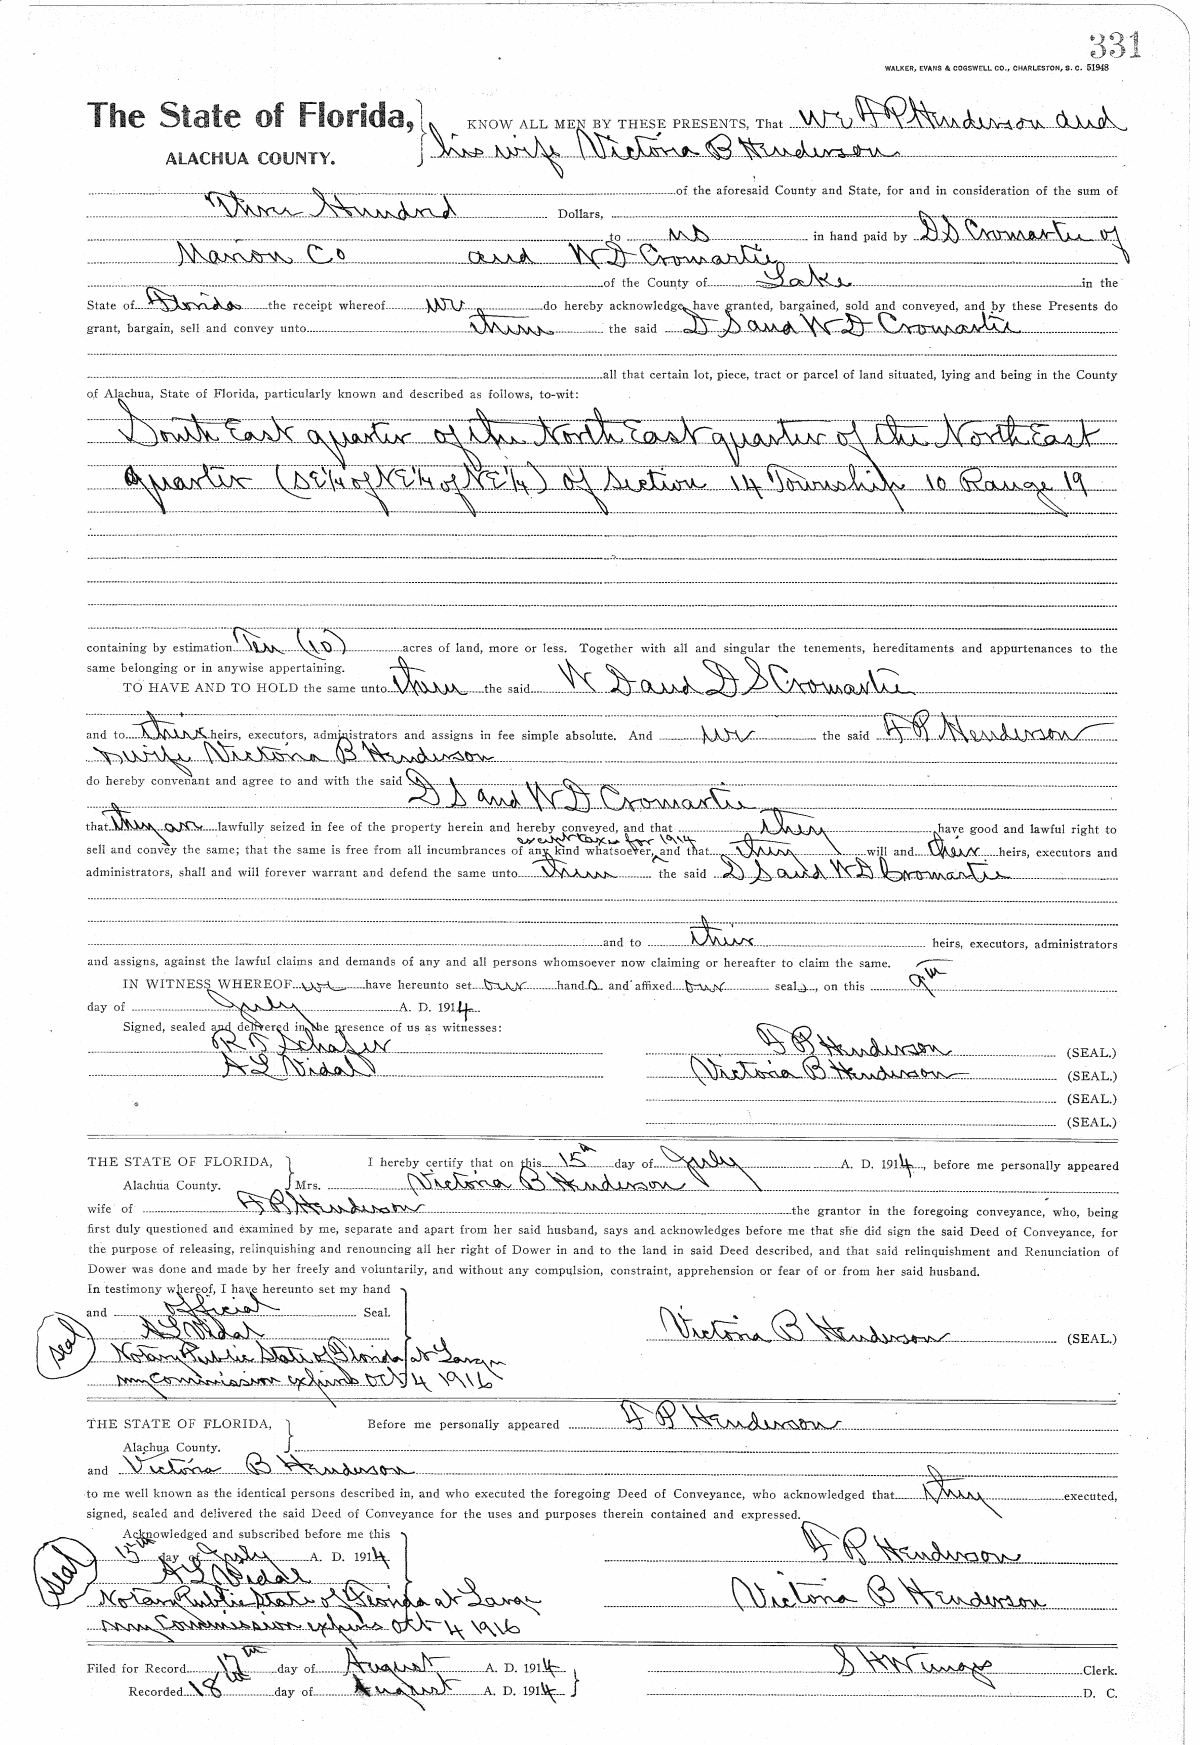 331
WALKER, EVANS & COGSWELL CO., CHARLESTON, S. C. 51948
The State of Florida, KNOW ALL MEN BY THESE PRESENTS, That We F P Henderson and
ALACHUA COUNTY. his wife Victoria B Henderson
of the aforesaid County and State, for and in consideration of the sum of
Three Hundred Dollars,
to us in hand paid by D S Cromartie of
Marion Co and W D Cromartie
of the County of Lake in the
State of Florida the receipt whereof we do hereby acknowledge, have granted, bargained, sold and conveyed, and by these Presents do
grant, bargain, sell and convey unto them the said D S and W D Cromartie
all that certain lot, piece, tract or parcel of land situated, lying and being in the County
of Alachua, State of Florida, particularly known and described as follows, to-wit:
South East quarter of the North East quarter of the North East
quarter (SE¼ of NE¼ of NE¼) of Section 14 Township 10 Range 19
containing by estimation Ten (10) acres of land, more or less. Together with all and singular the tenements, hereditaments and appurtenances to the
same belonging or in anywise appertaining.
TO HAVE AND TO HOLD the same unto them the said W D and D S Cromartie
and to their heirs, executors, administrators and assigns in fee simple absolute. And we the said F P Henderson
& wife Victoria B Henderson
do hereby convenant and agree to and with the said
D S and W D Cromartie
that they are lawfully seized in fee of the property herein and hereby conveyed, and that they have good and lawful right to
except taxes for 1914
sell and convey the same; that the same is free from all incumbrances of any kind whatsoever, and that they will and their heirs, executors and
administrators, shall and will forever warrant and defend the same unto them the said D S and W D Cromartie
and to their heirs, executors, administrators
and assigns, against the lawful claims and demands of any and all persons whomsoever now claiming or hereafter to claim the same.
IN WITNESS WHEREOF we have hereunto set our hands and affixed our seals, on this 9th
day of July A. D. 1914
Signed, sealed and delivered in the presence of us as witnesses:
R T Schafer F P Henderson (SEAL.)
A L Vidal Victoria B Henderson (SEAL.)
(SEAL.)
(SEAL.)
THE STATE OF FLORIDA, I hereby certify that on this 15th day of July A. D. 1914, before me personally appeared
Alachua County. Mrs. Victoria B Henderson
wife of F P Henderson the grantor in the foregoing conveyance, who, being
first duly questioned and examined by me, separate and apart from her said husband, says and acknowledges before me that she did sign the said Deed of Conveyance, for
the purpose of releasing, relinquishing and renouncing all her right of Dower in and to the land in said Deed described, and that said relinquishment and Renunciation of
Dower was done and made by her freely and voluntarily, and without any compulsion, constraint, apprehension or fear of or from her said husband.
In testimony whereof, I have hereunto set my hand
and official Seal.
seal A L Vidal Victoria B Henderson (SEAL.)
Notary Public State of Florida at Large
my Commission expires Oct 4 1916
THE STATE OF FLORIDA, Before me personally appeared F P Henderson
Alachua County.
and Victoria B Henderson
to me well known as the identical persons described in, and who executed the foregoing Deed of Conveyance, who acknowledged that they executed,
signed, sealed and delivered the said Deed of Conveyance for the uses and purposes therein contained and expressed.
Acknowledged and subscribed before me this
15th day of July A. D. 1914 F P Henderson
seal A L Vidal
Notary Public State of Florida at Large Victoria B Henderson
my Commission expires Oct 4 1916
Filed for Record 17th day of August A. D. 1914 S H Wienges Clerk.
Recorded 18th day of August A. D. 1914 D. C.